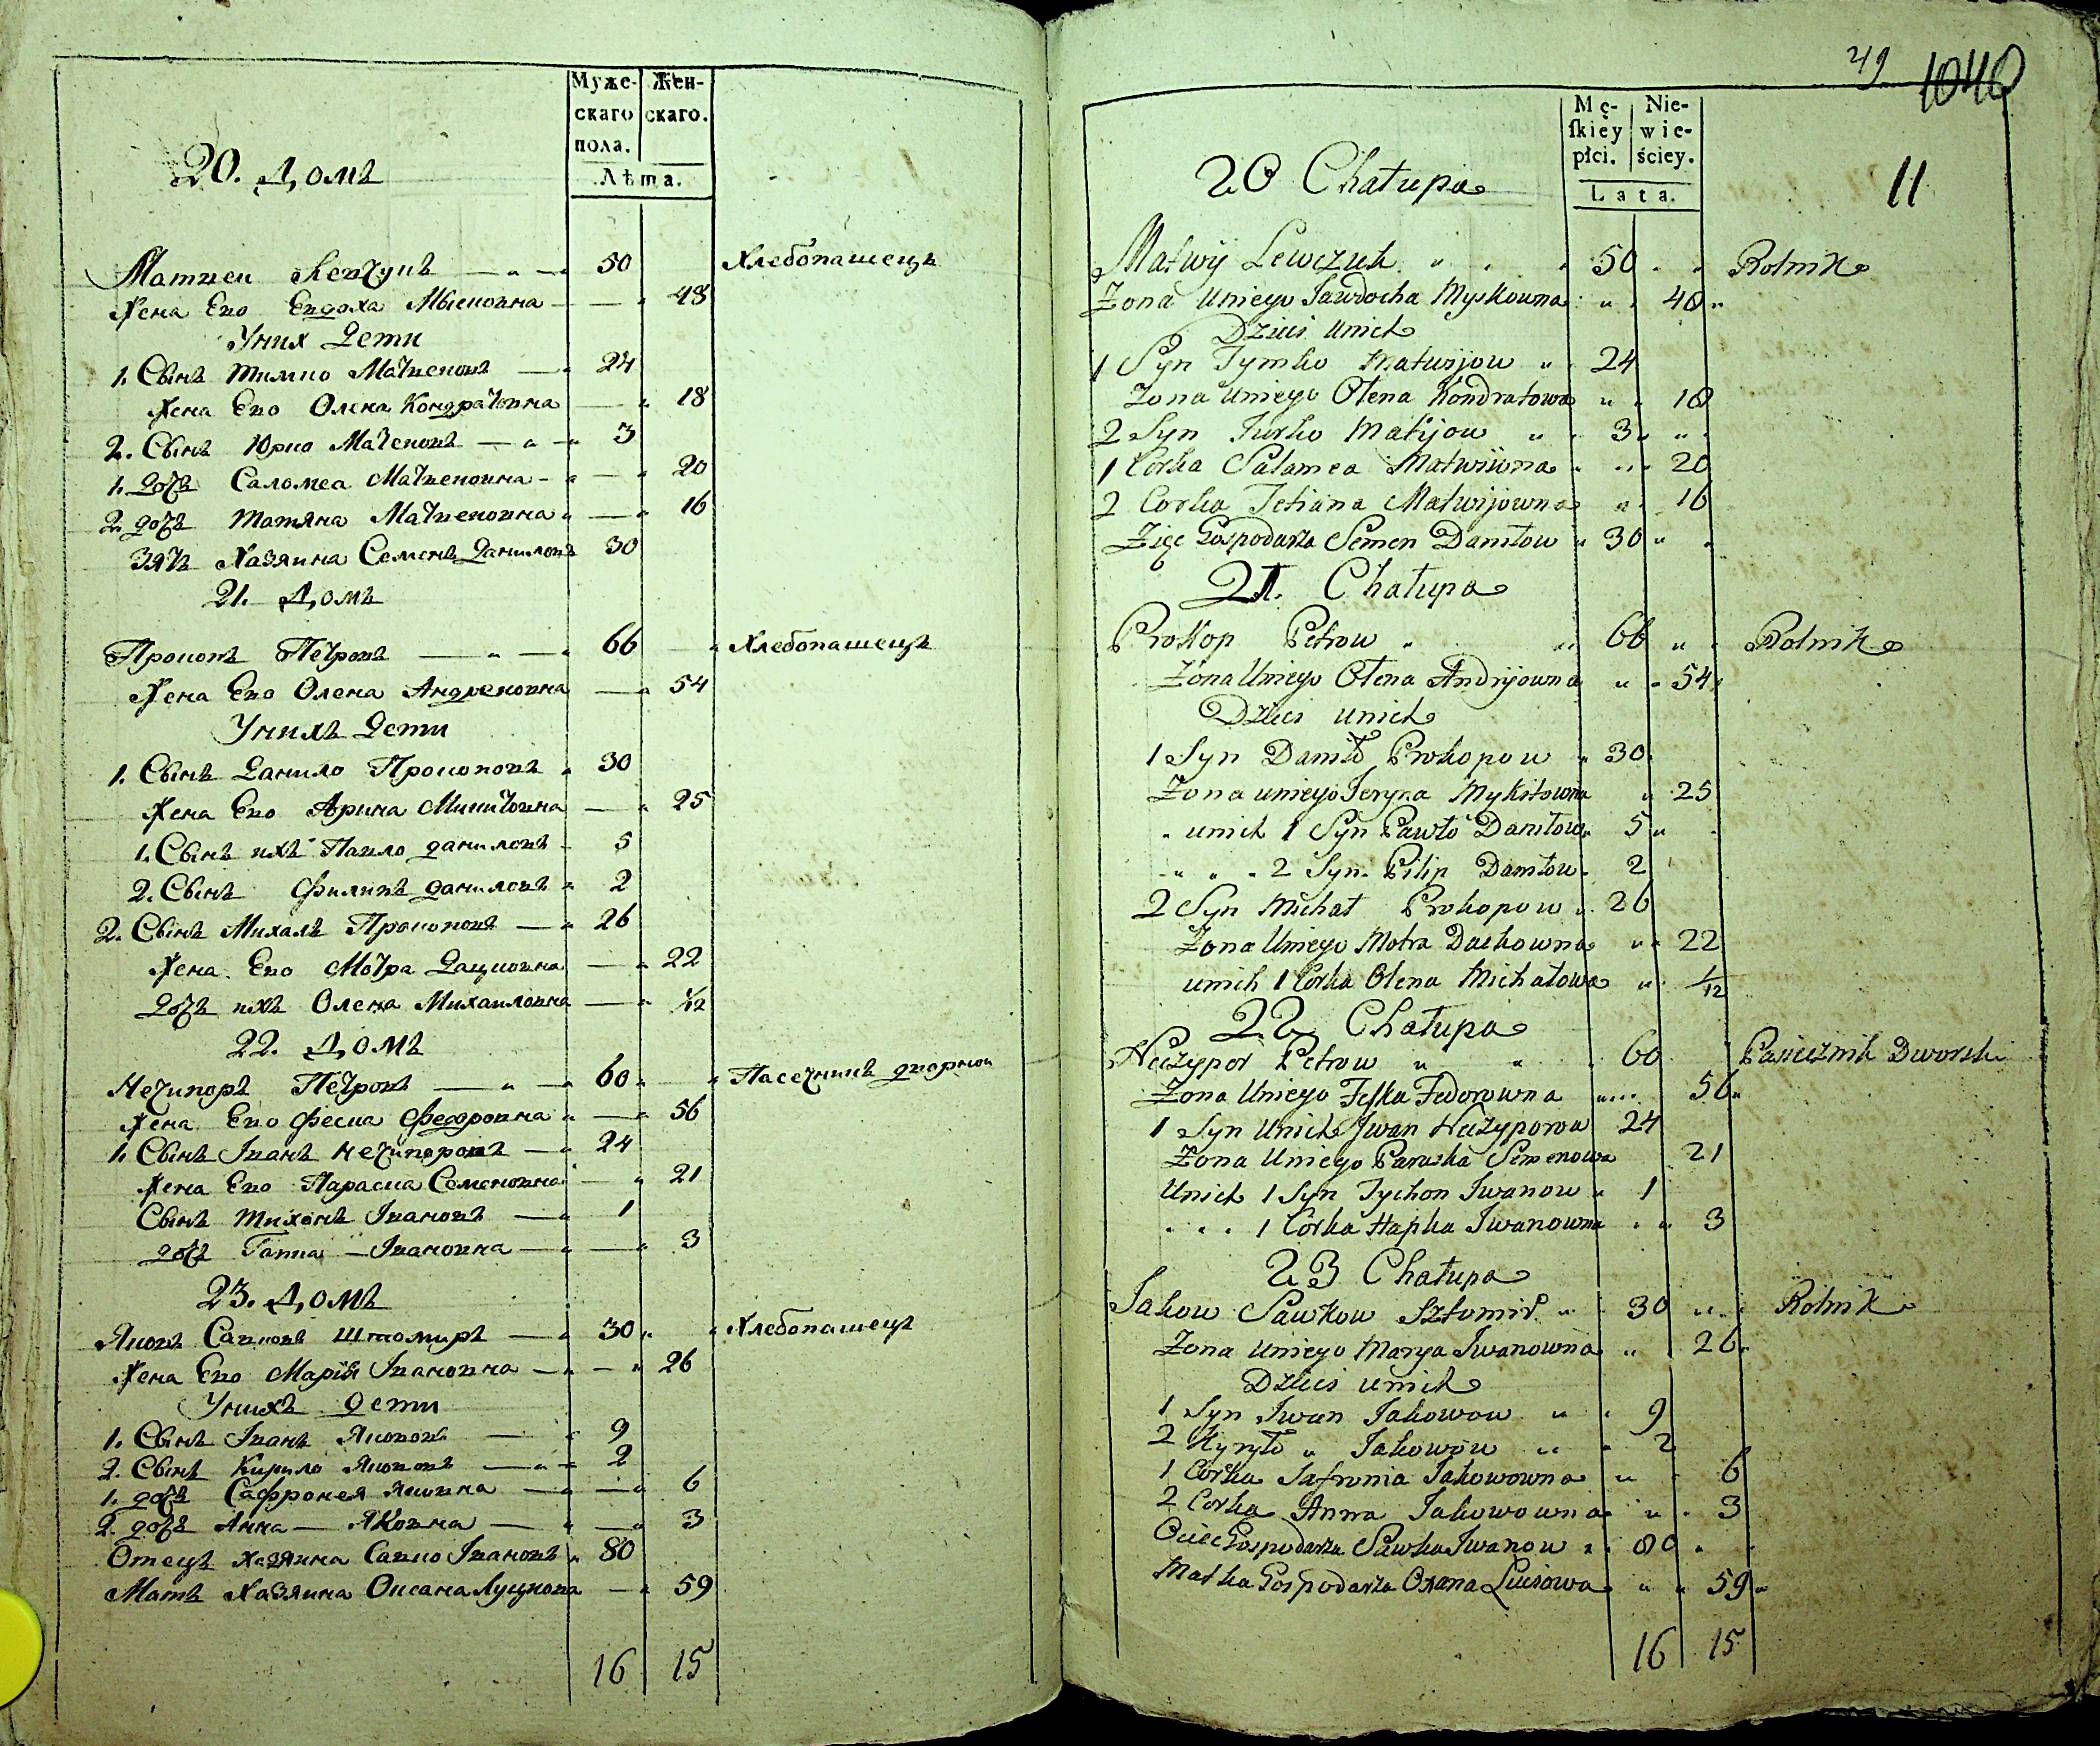 Муже-
скаго
пола.
Жен-
скаго.
Лѣта.
20. Домъ
Матвеи Левчукъ — „ — „ 50 Хлебопашецъ
Жена Его Евдоха Мысковна — „ 48
У них Дети
1. Сынъ Тимко Матвеювъ — „ 24
Жена Его Олена Кондратовна — „ 18
2. Сынъ Юрко Матеювъ — „ — „ 3
1. дочь Саломеа Матвеювна - „ — „ 20
2. дочь Татяна Матвеювна „ — „ 16
Зять Хазяина Семенъ Даниловъ 30
21. Домъ
Прокопъ Петровъ — „ — „ 66 „ Хлебопашецъ
Жена Его Олена Андреювна — „ 54
У нихъ Дети
1. Сынъ Данило Прокоповъ „ 30
Жена Его Арина Микитовна — „ 25
1. Сынъ ихъ Павло даниловъ - 5
2. Сынъ Филипъ даниловъ „ 2
2. Сынъ Михалъ Прокоповъ — „ 26
Жена Его Мотра Дацковна — „ 22
Дочь ихъ Олена Михаиловна — „ 1/12
22. Домъ
Нечипоръ Петровъ — „ — „ 60 „ „ Пасечникъ дворной
Жена Его Феска Федоровна „ — „ 56
1. Сынъ Іванъ Нечипоровъ — „ 24
Жена Его Параска Семеновна — „ 21
Сынъ Тихонъ Івановъ — „ 1
дочь Гапка — Івановна — „ — „ 3
23. Домъ
Яковъ Савковъ Штомиръ — „ 30 „ „ Хлебопашецъ
Жена Его Марія Івановна — „ — „ 26
У нихъ дети
1. Сынъ Іванъ Якововъ — „ 9
2. Сынъ Кирило Якововъ — „ — 2
1. дочь Сафронея Яковна — „ — „ 6
2. дочь Анна — Яковна — „ — „ 3
Отецъ хазяина Савко Івановъ „ 80
Мать Хазяина Оксана Луцкова — „ 59
16 15
49 1040
Mę-
ſkiey
płci.
Nie-
wie-
ściey.
Lata.
11
20 Chałupa
Matwij Lewczuk „ „ „ 50 „ „ Rolnik
Zona Uniego Jawdocha Myskowna „ „ 48 „
Dzieci Unich
1 Syn Tymko Matwijow „ 24
Zona Uniego Ołena Kondratowa „ „ 18
2 Syn Jurko Matijow „ „ 3 „ „ „
1 Corka Salamea Matwiiwna „ „ „ 20
2 Corka Tetiana Matwijowna „ „ 16
Zięc Gospodarza Semen Daniłow „ 30 „ „
21. Chałupa
Prokop Petrow „ „ 66 „ „ Rolnik
Zona Uniego Ołena Andrijowna „ „ 54 „
Dzieci unich
1 Syn Daniło Prokopow „ 30
Zona uniego Jeryna Mykitowna „ 25
„ unich 1 Syn Pawło Daniłow „ 5 „ „
„ „ „ 2 Syn Pilip Daniłow „ 2
2 Syn Michał Prokopow „ 26
Zona Uniego Motra Dackowna „ „ 22
unich 1 Corka Olena Michałowa „ 1/12
22 Chałupa
Neczypor Petrow „ „ „ 60 „ Pasiecznik Dworski
Zona Uniego Feſka Fedorowna „ „ „ 56 „
1 Syn Unich Jwan Neczyporow 24
Zona Uniego Paraska Semenowa 21
Unich 1 Syn Tychon Jwanow „ 1
„ „ „ 1 Córka Hapka Jwanowna „ „ 3
23 Chałupa
Jakow Sawkow Sztomir „ „ 30 „ „ Rolnik
Zona uniego Marya Jwanowna „ „ 26 „
Dzieci unich
1 Syn Jwan Jakowow „ „ 9
2 Kyryło „ Jakowów „ „ 2
1 Corka Safronia Jakowowna „ „ 6
2 Corka Anna Jakowowna „ „ 3
Ociec Gospodarza Sawka Jwanow „ „ 80 „ „
Matka Gospodarza Oxana Luciowa „ „ 59 „
16 15